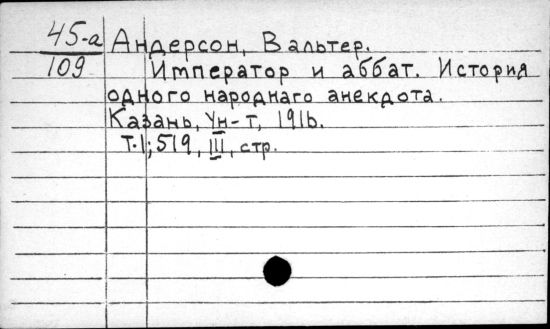 45-а Андерсон, Вальтер.
109 Император и аббат. История
одного народнаго анекдота.
Казань, Ун-т, 1916.
Т.1; 519, III, стр.